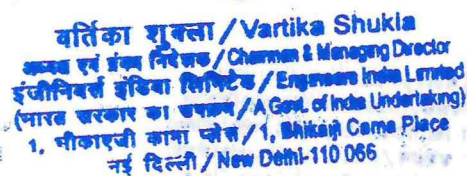 वर्तिका शुक्ला / Vartika Shukla
अध्यक्ष एवं प्रबंध निदेशक / Chairman & Managing Director
इंजीनियर्स इंडिया लिमिटेड / Engineers India Limited
(भारत सरकार का उपक्रम / A Govt. of India Undertaking)
1, भीकाएजी कामा प्लेस / 1, Bhikaiji Cama Place
नई दिल्ली / New Delhi-110 066